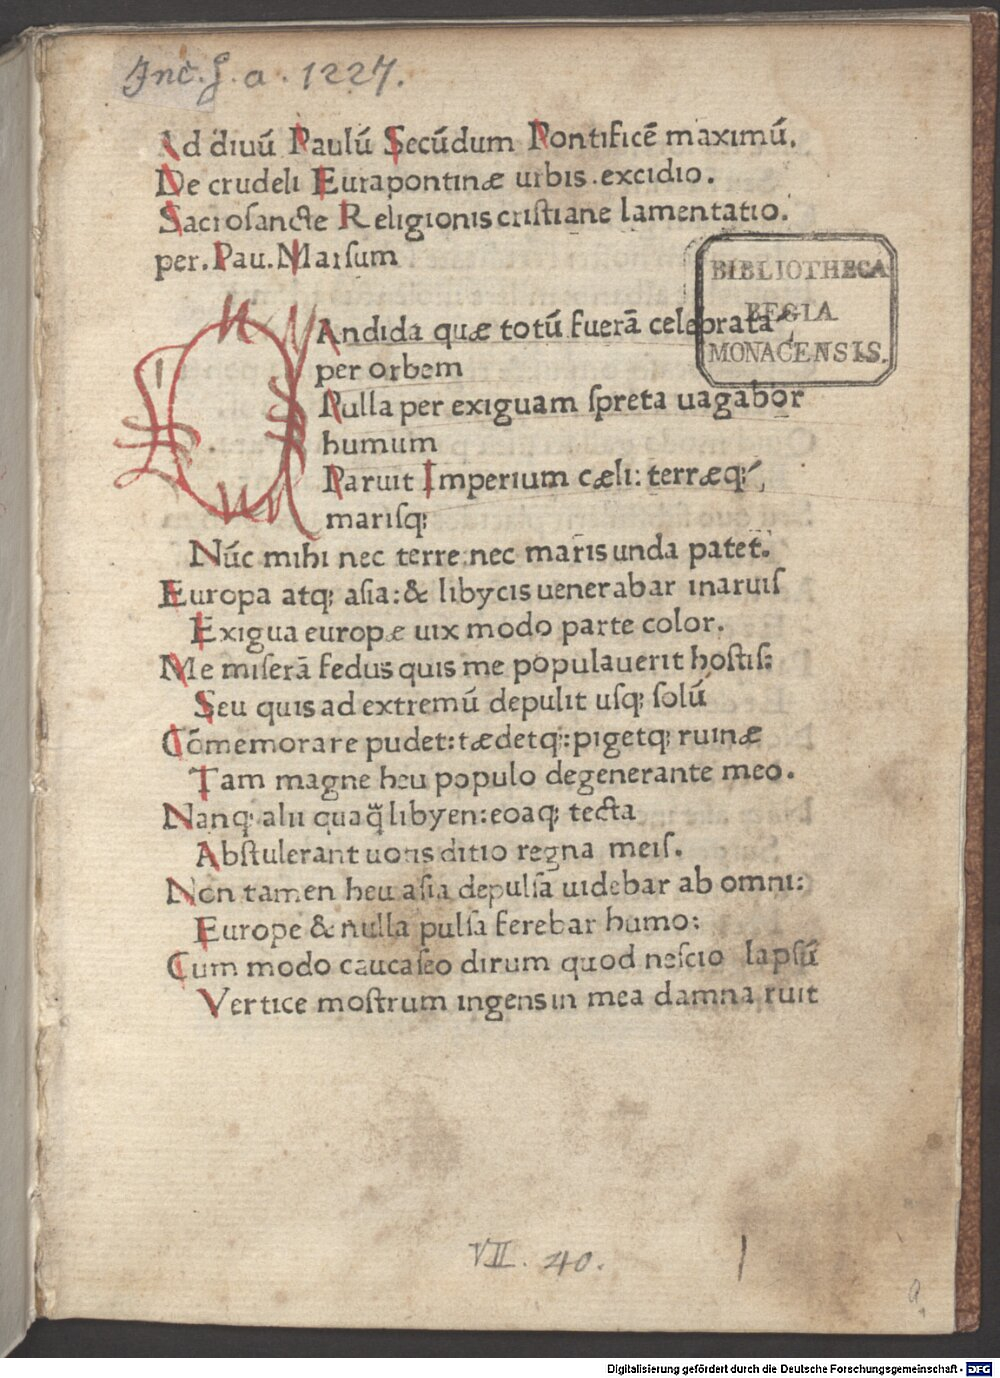 Inc. s. a. 1227.
Ad diuū Paulū Secūdum Pontificē maximū.
De crudeli Eurapontinæ urbis .excidio.
Sacrosancte Religionis cristiane lamentatio.
per. Pau. Marsum
BIBLIOTHECA
REGIA
MONACENSIS.
CAndida quæ totū fuerā celebrata
per orbem
Nulla per exiguam spreta uagabor
humum
Paruit Imperium cæli: terræq;
marisq;
Nūc mihi nec terre: nec maris unda patet.
Europa atq; asia: & libycis uenerabar inaruis
Exigua europæ uix modo parte color.
Me miserā fedus quis me populauerit hostis:
Seu quis ad extremū depulit usq; solū
Cōmemorare pudet: tædetq;: pigetq; ruinæ
Tam magne heu populo degenerante meo.
Nanq; alii libyen: eoaq; tecta
Abstulerant uotis ditio regna meis.
Non tamen heu asia depulsa uidebar ab omni:
Europe & nulla pulsa ferebar humo:
Cum modo caucaseo dirum quod nescio lapsū
Vertice mostrum ingens in mea damna ruit
VII. 40.
a
Digitalisierung gefördert durch die Deutsche Forschungsgemeinschaft - DFG